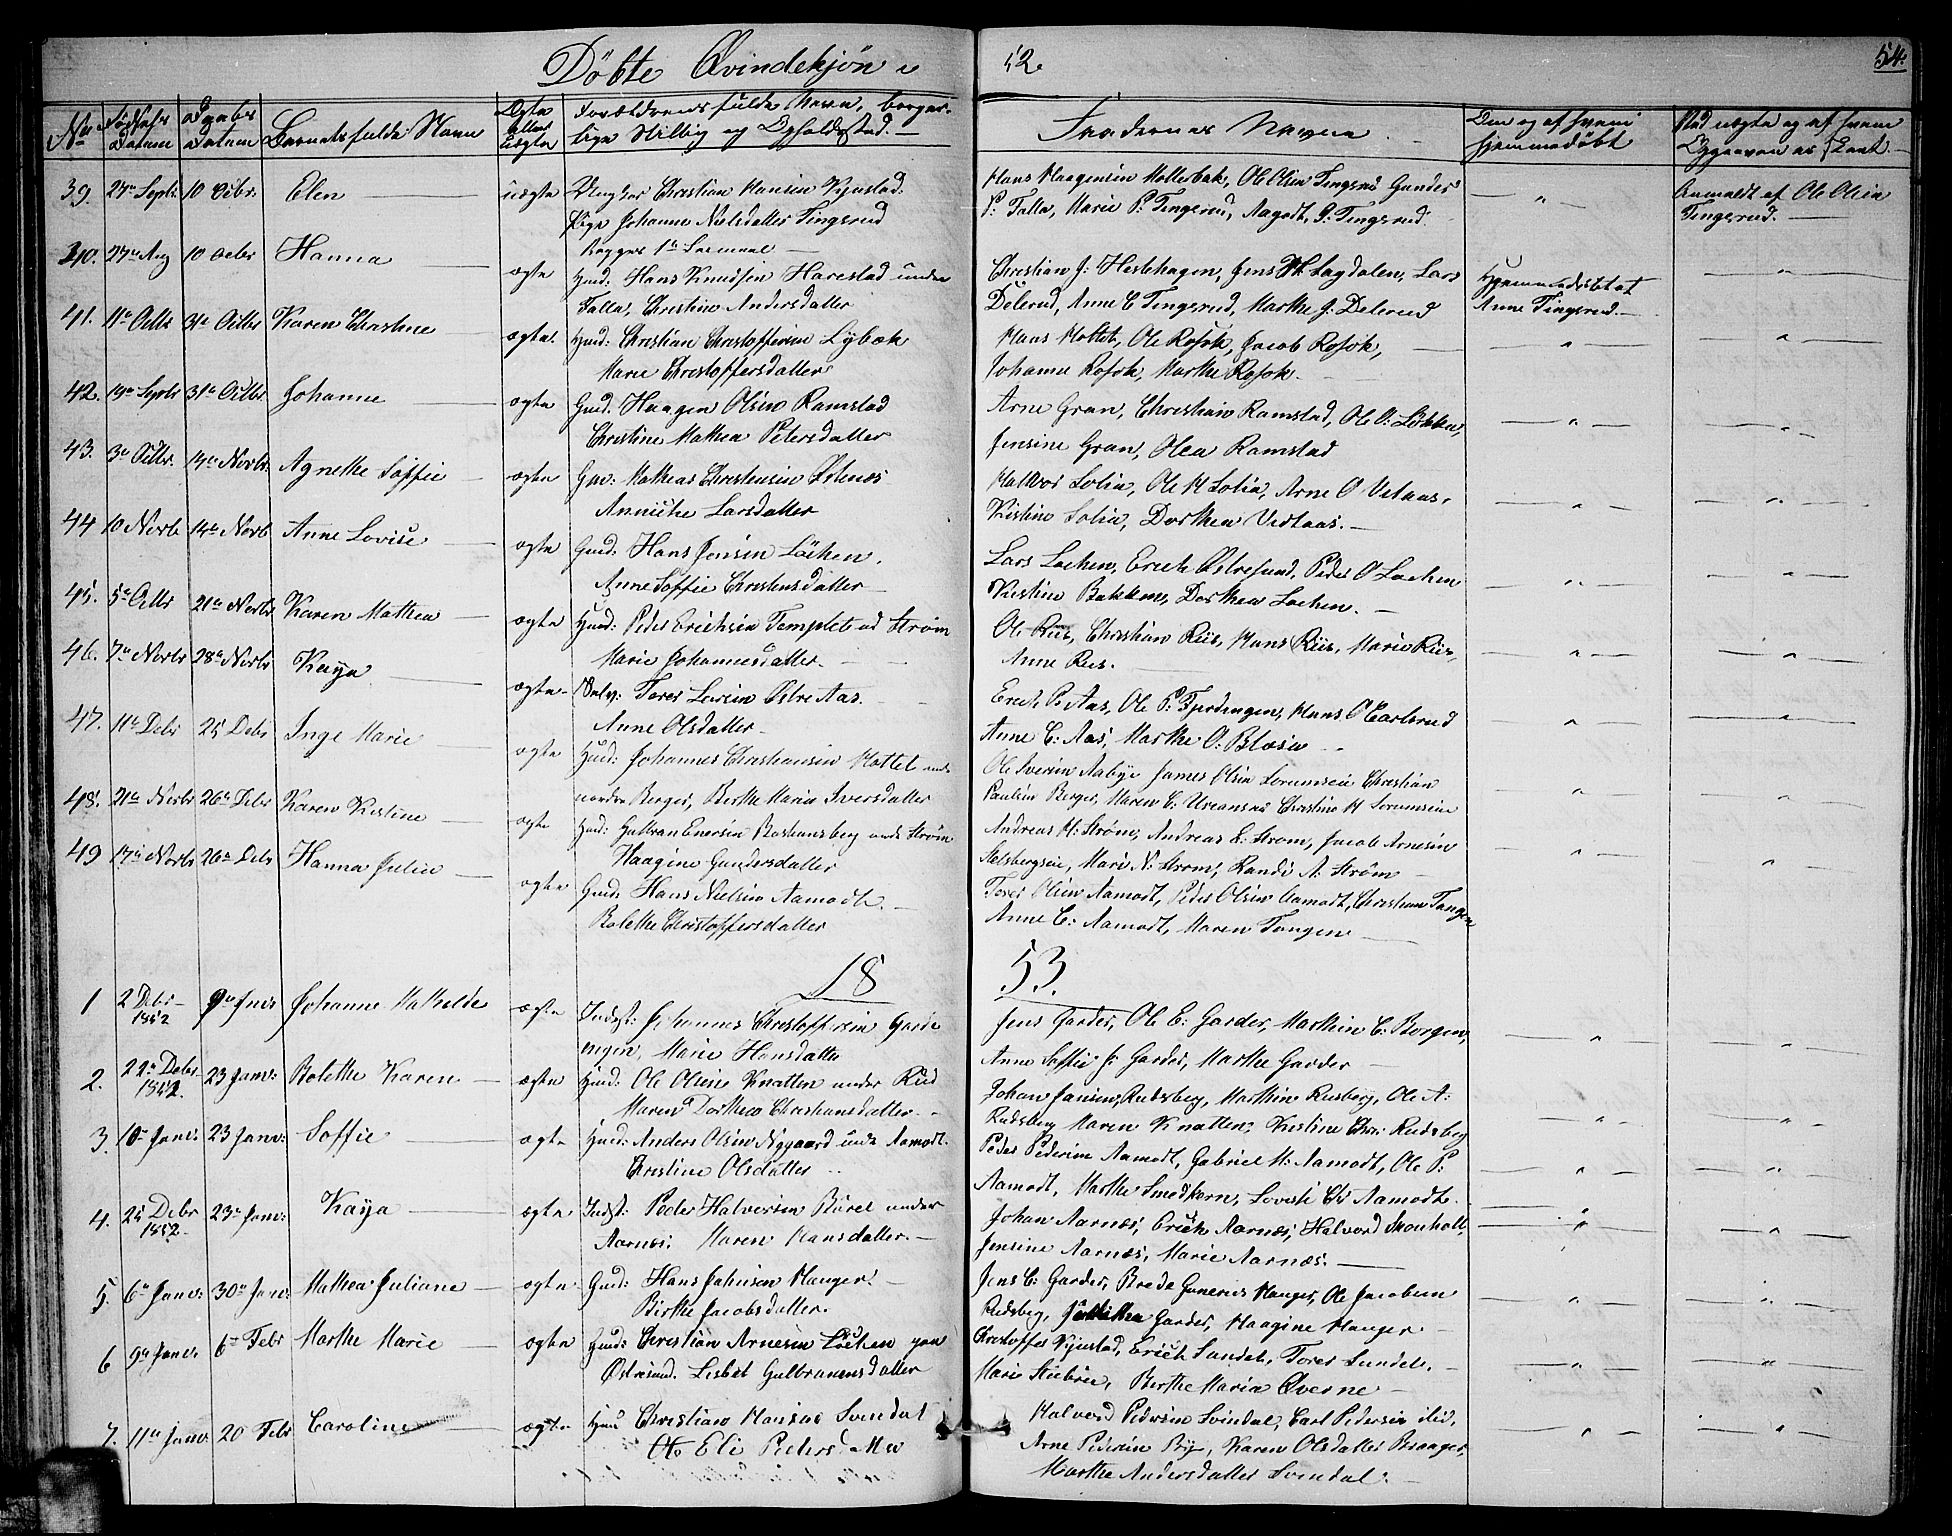 Döbte Qvindekjön
52
54.
No Fødsels Datum Daabs Datum Barnets fulde Navn Ægte eller Uægte Forældrenes fulde Navn, borger-
lige Stilling og Opholdsted.
Faddernes Navne
Om og af hvem hjemmedøbt
39. 27 Septr 10 Octbr. Elen uægte Ungkar Christian Hansen Kjustad.
Pige Johanne Nielsdatter Tingsrud
Begges 1ste Leiermaal
Hans Haagensen Mollerbak, Ole Olsen Tingsrud Gunder
P: Talla, Marie P. Tingsrud, Aagodt G. Tingsrud.
Anmeldt af Ole Olsen
Tingsrud.
40. 27 Aug 10 Octbr Hanna ægte Huusd: Hans Knudsen Harestad under
Falla, Christine Andersdatter
Christian J: Hestehagen, Jens H Lagdalen, Lars
Delerud, Anne C Tingsrud, Marthe J: Delerud
Hjemmedøbt af
Anne Tingsrud.
41. 11 Octbr 31 Octbr Karen Christine ægte Huusd: Christian Christoffersen Lybæk
Marie Christoffersdatter
Hans Hottet, Ole Rosok, Jacob Rosok,
Johanne Rosok, Marthe Rosok.
42. 19 Septr 31 Octbr. Johanne ægte Gaud. Haagen Olsen Ramstad
Christine Mathea Petersdatter
Arne Gran, Christian Ramstad, Ole O: Løkken,
Jensine Gran, Olea Ramstad
43. 3 Octbr. 14 Novbr. Agnethe Soffie ægte Mathias Christensen
Annichen Larsdatter
Halvor Solia, Ole H Solia, Arne O
Kistine Solia, Dorthea
44 10 Novb 14 Novb Anne Lovise ægte Gaud: Hans Jensen Löchen.
Anne Soffie Christensdatter
Lars Lochen, Erich Østresund, Peder O Lochen
Kirstine Bakken, Dorthea Lochen.
45. 5 Octbr 21 Novbr Karen Mathea ægte Huusd: Peder Erichsen Templet ud Strøm
Marie Johannesdatter.
Ole Riis, Christian Riis, Hans Riis, Marie Riis,
Anne Riis.
46. 7 Novbr 28 Novbr Kaya ægte Selv: Torer Larsen Østre Aas.
Anne Olsdatter
Erich P. Aas, Ole P: Fjerdingen, Hans O Carlsrud
Anne C: Aas, Marthe O: Blæsen
47. 11 Debr 25 Debr Inge Marie ægte Huusd: Johannes Christiansen Hottet under
nordre Berger, Berthe Marie Iversdatter
Ole Iversen Aabye James Olsen Sorumseie Christian
Paulsen Berger, Maren C: Christine H Sorumseie
48. 21 Novbr 26 Debr Karen Kistine ægte Huusd: Gulbran Enersen under Strøm
Haagine Gundersdatter
Andreas H: Strøm, Andreas E: Strom, Jacob Arnesen
Mari N: Strom, Randi A: Strøm
49 17 Novbr 26 Debr Hanna Julie ægte Gaud: Hans Nielsen Aamodt.
Bolethe Christoffersdatter
Torer Olsen Aamodt, Peder Olsen Aamodt, Christian Tangen
Anne C: Aamodt, Maren Tangen
18 53.
1 2 Debr 1852 9 Janr Johanne Mathilde ægte Indst: Johannes Christoffersen Garder
engen, Marie Hansdatter
Jens Garder, Ole E: Garder, Marthin C: Borgen,
Anne Soffie J: Garder, Marthe Garder
2. 22 Debr 1852. 23 Janr: Bolethe Karen ægte Huusd: Ole Olsen Knatten under Rud
Maren Dorthea Christiansdatter
Johan Jansen Rudsberg, Marthin Rusberg, Ole A:
Rudsberg Maren Knatten, Kistine Chr: Rudsberg
3. 10 Janr: 23 Janr: Soffie ægte Huusd: Anders Olsen Nygaard under Aamodt.
Christine Olsdatter
Peder Pedersen Aamodt, Gabriel H: Aamodt, Ole P:
Aamodt, Marthe Smedkorn, Lovise Aamodt.
4. 25 Debr 1852. 23 Janr: Kaya ægte Indst: Peder Halversen Burel under
Aarnes. Maren Hansdatter.
Johan Aarnæs, Erich Aarnæs, Halvord Skonholt,
Jensine Aarnæs, Marie Aarnæs.
5. 6 Janr: 30 Janr: Mathea Juliane ægte Gaud: Hans Jahnsen Hanger.
Birthe Jacobsdatter.
Jens C: Garder, Brede Gunerius Hanger, Ole Jacobsen
Rudsberg, Garder, Haagine Hanger
6 9 Janr: 6 Febr Marthe Marie ægte Huusd: Christian Arnesen Löchen paa
Østresund. Lisbet Gulbransdatter
Christoffer Kjustad, Erich Sundet, Torer Sundet,
Marie Berthe Maria Qverne
7. 11 Janr: 20 Febr Caroline ægte Huusd Christian Hansen Svendal
Eli Pedersdatter
Halvord Pedersen Svindal, Carl Pedersen ibid,
Arne Pedersen By, Karen Olsdatter Braanger,
Marthe Andersdatter Svendal.